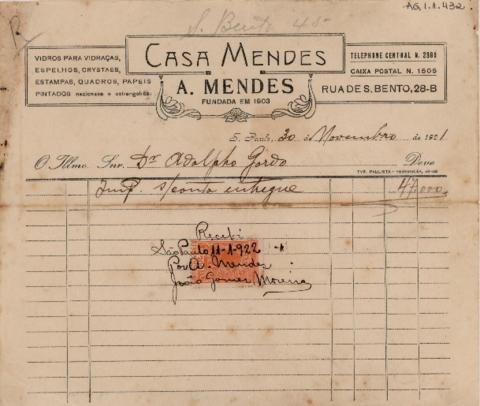 AG.1.1.432
S. Bento 45
VIDROS PARA VIDRAÇAS,
ESPELHOS, CRYSTAES,
ESTAMPAS, QUADROS, PAPEIS
PINTADOS nacionaes e estrangeiros
CASA MENDES
A. MENDES
FUNDADA EM 1903
CAIXA POSTAL N. 1505
RUA DE S. BENTO, 28-B
TELEPHONE CENTRAL N.
S. Paulo, 30 de Novembro de 1921
O Illmo. Snr. Dr Adolpho Gordo Deve
TYP. PAULISTA
Imp. s/conta entregue 47.000
Recebi
São Paulo 11-1-922
Por A. Mendes
João Gomes Moreira